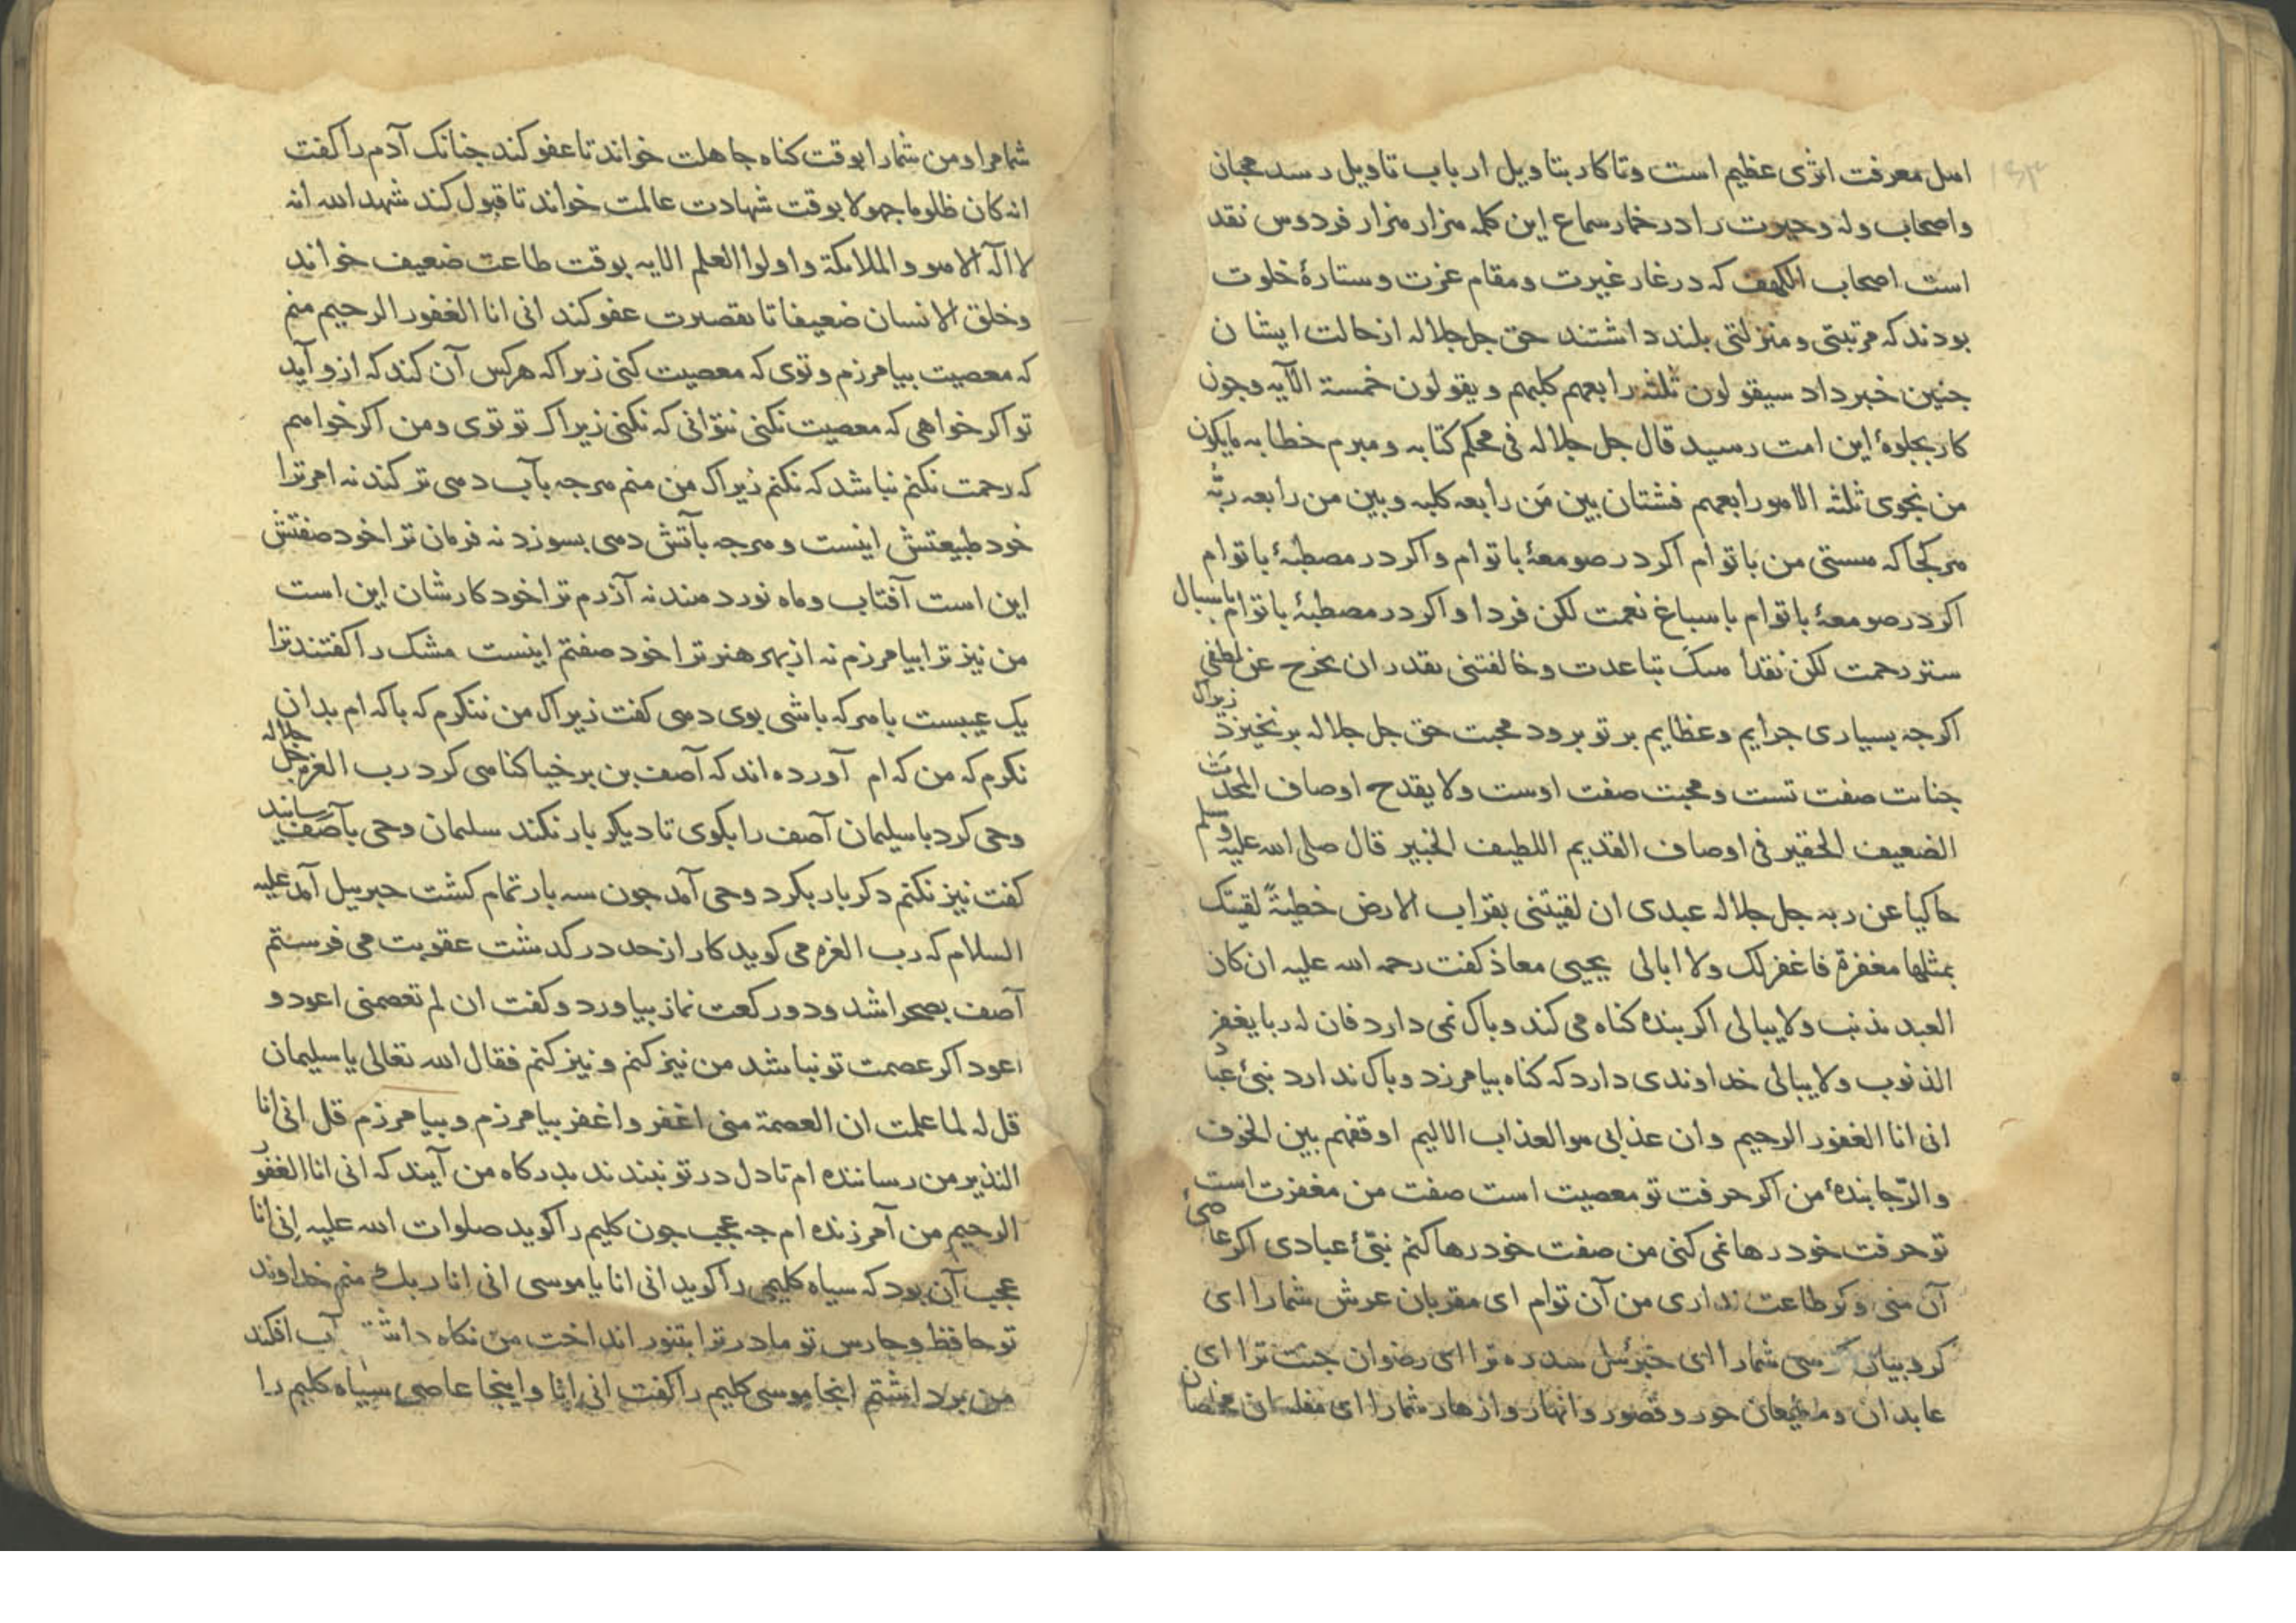 ۱۶۳
اهل معرفت اثری عظیم است و تا کار بتاویل ارباب تاویل رسد محبان
و اصحاب وله و حیرت را در خمار سماع این کلمه هزار هزار فردوس نقد
است اصحاب الکهف که در غار غیرت و مقام عزت و ستارهٔ خلوت
بودند که مرتبتی و منزلتی بلند داشتند حق جل جلاله از حالت ایشان
جنین خبر داد سیقولون ثلثه رابعهم کلبهم و یقولون خمسة الآیه و جون
کار بجلوهٔ این امت رسید قال جل جلاله فی محکم کتابه و مبرم خطابه مایکون
من نجوی ثلثه الا هو رابعهم فشتان بین مَن رابعه کلبه و بین من رابعه ربُّه
هر کجا که هستی من با توام اکر در صومعهٔ با توام و اکر در مصطبهٔ با توام
اکر در صومعهٔ با توام باسباغ نعمت لکن فردا و اکر در مصطبهٔ با توام باسبال
ستر رحمت لکن نقدا تباعدت و خالفتنی بقدر ان تخرج عن لطفی
اکرجه بسیاری جرایم و عظایم بر تو برود محبت حق جل جلاله بر نخیزد زیراک
جنایت صفت تست و محبت صفت اوست ولا یقدح اوصاف المحدَث
الضعیف الحقیر فی اوصاف القدیم اللطیف الخبیر قال صلی الله علیه وسلم
حاکیا عن ربه جل جلاله عبدی ان لقیتنی بقراب الارض خطیةً لقیتک
بمثلها مغفرة فاغفر لک ولا ابالی یحیی معاذ کفت رحمه الله علیه ان کان
العبد یذنب ولا یبالی اکر بنده کناه می کند و باک نمی دارد فان له ربا یغفر
الذنوب ولا یبالی خداوندی دارد که کناه بیامرزد و باک ندارد نبئ عباد
انی انا الغفور الرحیم وان عذابی هو العذاب الالیم اوقفهم بین الخوف
والرّجا بندهٔ من اکر حرفت تو معصیت است صفت من مغفرت است
تو حرفت خود رها نمی کنی من صفت خود رها کنم نبّئ عبادی اکر عاصئ
آن منی و کر طاعت نداری من آن توام ای مقربان عرش شمارا ای
کروبیان کرسی شمارا ای جبرئیل سدره ترا ای رضوان جنت ترا ای
عابدان و مطیعان حور و قصور و انهار و ازهار شمارا ای مفلسان مخلصان
شما مرا و من شمارا بوقت کناه جاهلت خواند تا عفو کند جنانک آدم را کفت
انه کان ظلوما جهولا بوقت شهادت عالمت خواند تا قبول کند شهد الله انه
لا اله الا هو والملائکة واولوا العلم الایه بوقت طاعت ضعیف خواند
وخلق الانسان ضعیفا تا تقصیرت عفو کند انی انا الغفور الرحیم منم
که معصیت بیامرزم و توی که معصیت کنی زیرا که هرکس آن کند که ازو آید
تو اکر خواهی که معصیت نکنی نتوانی که نکنی زیراک تو توی و من اکر خواهم
که رحمت نکنم نباشد که نکنم زیراک من منم هرجه بآب دهی تر کند نه امر ترا
خود طبیعتش اینست و هرجه بآتش دهی بسوزد نه فرمان ترا خود صفتش
این است آفتاب و ماه نور دهند نه آزرم ترا خود کارشان این است
من نیز ترا بیامرزم نه از بهر هنر ترا خود صفتم اینست مشک را کفتند ترا
یک عیبست با هرکه باشی بوی دهی کفت زیراک من ننکرم که باکه ام بدان
نکرم که من که ام آورده اند که آصف بن برخیا کناهی کرد رب العزه جل جلاله
وحی کرد با سلیمان آصف را بکوی تا دیکر بار نکند سلیمان وحی بآصف رسانید
کفت نیز نکنم دکر بار بکرد وحی آمد جون سه بار تمام کشت جبریل آمد علیه
السلام که رب العزه می کوید کار از حد درکدشت عقوبت می فرستم
آصف بصحرا شد و دو رکعت نماز بیاورد و کفت ان لم تعصمنی اعود و
اعود اکر عصمت تو نباشد من نیز کنم و نیز کنم فقال الله تعالی یا سلیمان
قل له لما علمت ان العصمة منی اغفر واغفر بیامرزم و بیامرزم قل انی انا
النذیر من رساننده ام تا دل در تو نبندند بدرکاه من آیند که انی انا الغفور
الرحیم من آمرزنده ام جه عجب جون کلیم را کوید صلوات الله علیه اِنی انا
عجب آن بود که سیاه کلیمی را کوید انی انا یا موسی انی انا ربک منم خداوند
تو حافظ و حارس تو مادر ترا بتنور انداخت من نکاه داشتم آب افکند
من برداشتم اینجا موسی کلیم را کفت انی انا و اینجا عاصی سیاه کلیم را